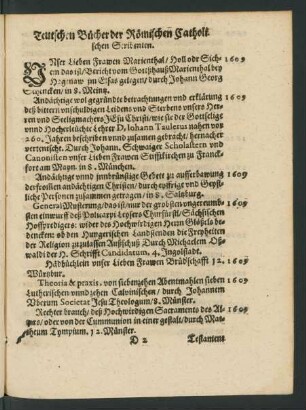 Teutschen Bücher der Römischen Catholi
schen Scribenten.
UNser Lieben Frawen Marienthal / Holl oder Sich- 1609
em das ist / Bericht vom Gottshauß Marienthal bey
Hagenaw im Elsas gelegen / durch Johann Georg
in 8. Meintz.
Andächtige wol gegründte betrachtungen vnd erklärung 1609
deß bittern vnschuldigen Leidens vnd Sterbens vnsers Her-
ren vnd Seeligmachers JEsu Christi / wie sie der Gottselige
vnd Hocherleuchte Lehrer D. Johann Taulerus nahen vor
260. Jahren beschrieben vnd zusamen gebracht / hernacher
verteutscht. Durch Johann. Schwaiger Scholastern vnd
Canonisten vnser Lieben Frawen Stifftkirchen zu Franck-
fort am Mayn. in 8. München.
Andächtige vnnd jnnbrünstige Gebett zu aufferbawung 1609
der frollen andächtigen Christen / durch eyfrige vnd Geyst-
liche Personen zusammen getragen / in 8. Saltzburg.
General Musterung / das ist / nur der grösten vngereumb- 1609
sten einwürff deß Policarpi Leysers Churfürstl. Sächsischen
Hoffpredigers: wider des Hochwirdigen Herrn Gläselii be-
dencken: ob den Hungerischen Landständen die Freyheiten
der Religion zuzulassen Außschuß Durch Michaelem Oß-
waldt der H. Schrifft Candidatum, 4. Ingolstadt.
Handbüchlein vnser Lieben Frawen Brüdschafft 12. 1609
Würtzbur.
Theoria & praxis. von siebenzehen Abentmahlen sieben 1609
Lutherischen vnnd zehen Calvinischen / durch Johannem
Rberum Societat. Jesu Theologum / 8. Münster.
Rechter brauch / deß Hochwürdigen Sacraments des Al- 1609
ars / oder von der Cummunion in einer gestalt / durch Mat-
theum Tympium, 12. Münster.
D 2 Testament